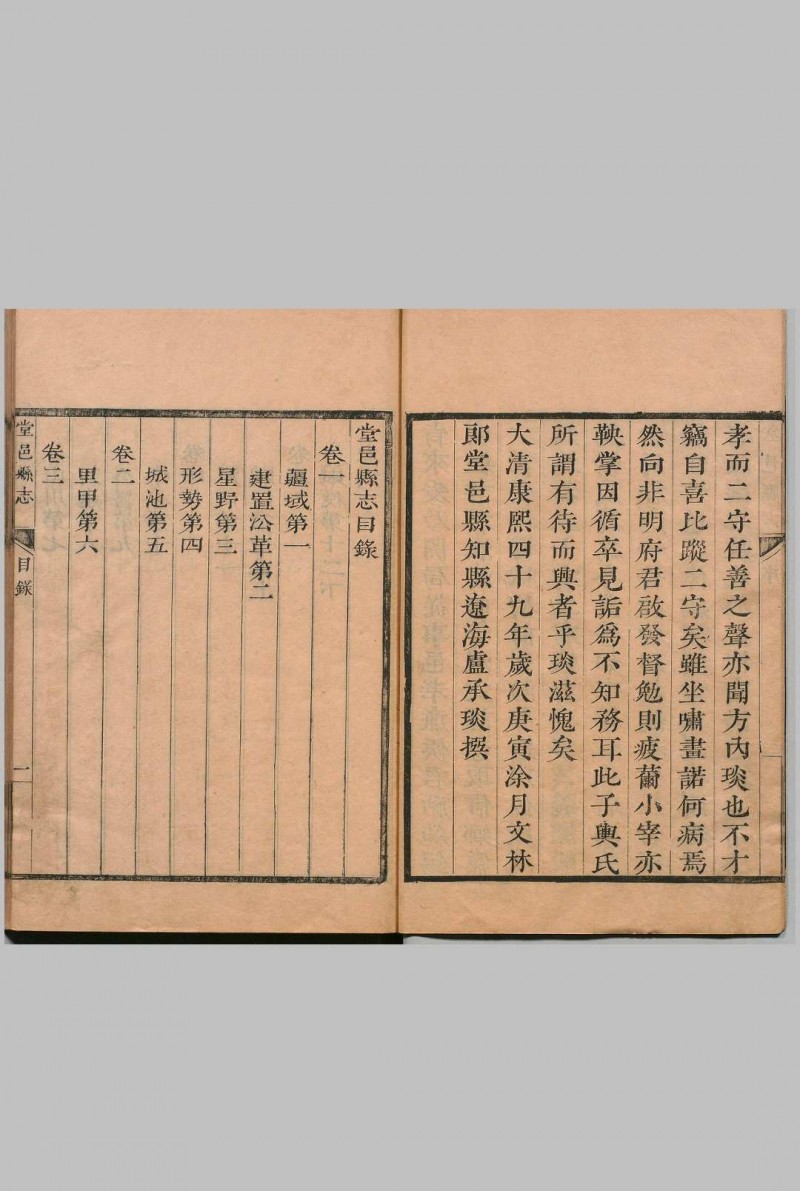 孝而二守任善之聲亦聞方內琰也不才
竊自喜比蹤二守矣雖坐嘯畫諾何病焉
然向非明府君啟發督勉則疲薾小宰亦
鞅掌因循卒見詬爲不知務耳此子輿氏
所謂有待而興者乎琰滋愧矣
大清康熙四十九年歲次庚寅涂月文林
郎堂邑縣知縣遼海盧承琰撰
堂邑縣志目錄
卷一
疆域第一
建置沿革第二
星野第三
形勢第四
城池第五
卷二
里甲第六
卷三
堂邑縣志
目錄
一